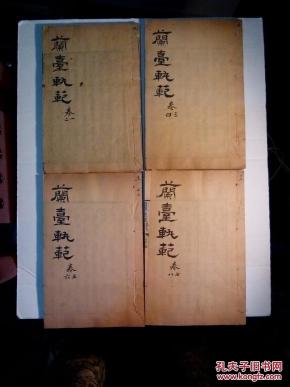 蘭臺軌範
卷一二
蘭臺軌範
卷三四
蘭臺軌範
卷五六
蘭臺軌範
卷七八
孔夫子旧书网